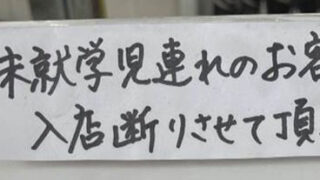 未就学児連れのお客
入店断りさせて頂